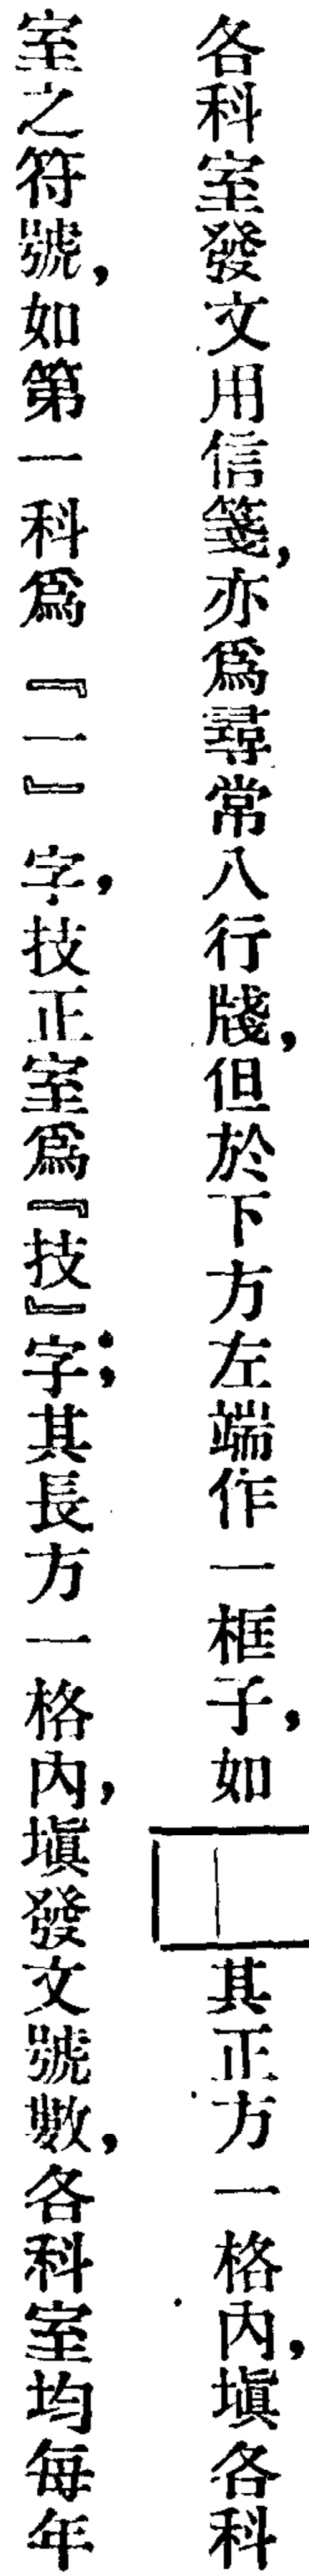 各科室發文用信箋，亦爲尋常八行牋，但於下方左端作一框子，如 其正方一格內，塡各科
室之符號，如第一科爲『一』字，技正室爲『技』字；其長方一格內，塡發文號數，各科室均每年